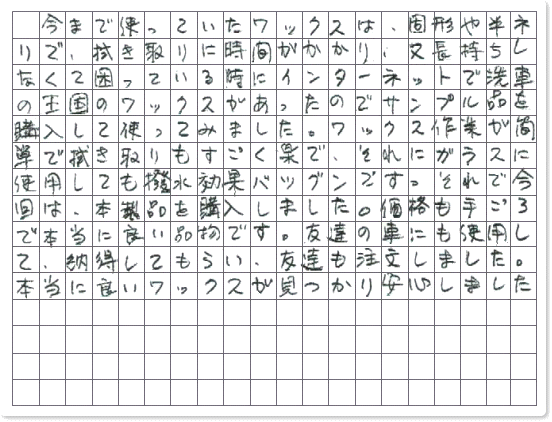 今まで使っていたワックスは、固形や半ネ
リで、拭き取りに時間がかかり、又長持ちし
なくて困っている時にインターネットで洗車
の王国のワックスがあったのでサンプル品を
購入して使ってみました。ワックス作業が簡
単で拭き取りもすごく楽で、それにガラスに
使用しても撥水効果バツグンです。それで今
回は、本製品を購入しました。価格も手ごろ
で本当に良い品物です。友達の車にも使用し
て、納得してもらい、友達も注文しました。
本当に良いワックスが見つかり安心しました